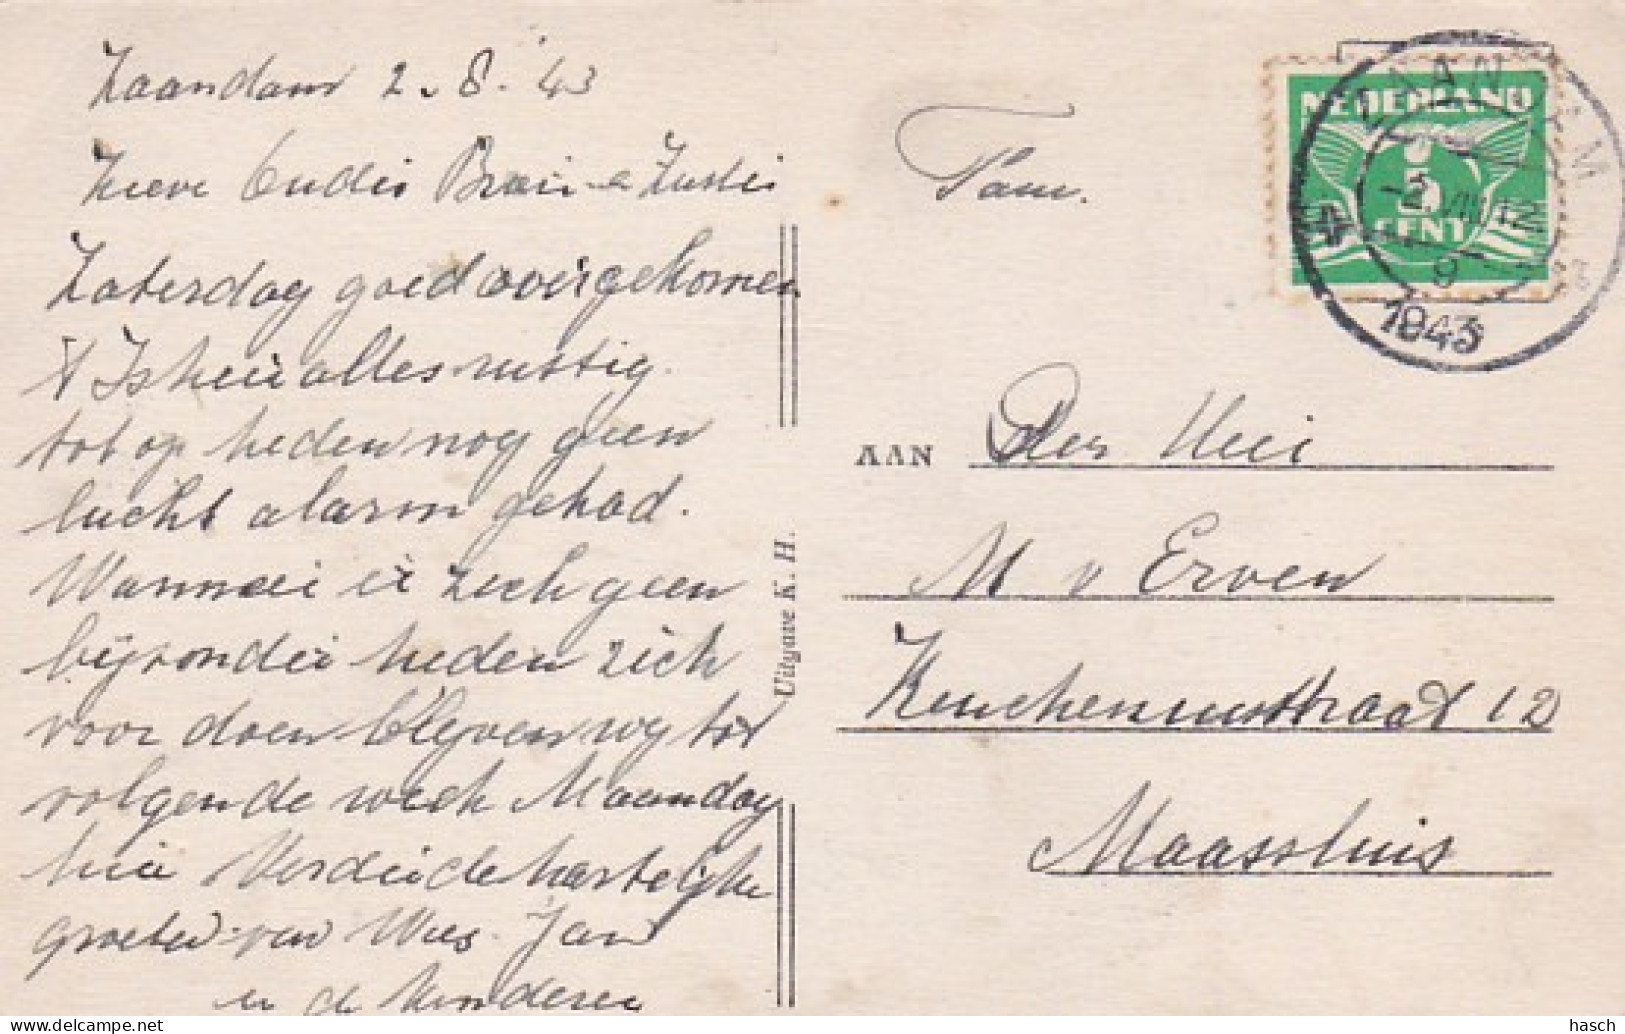 Zaandam 2.8.'43
Lieve Ouders Broer en Zusters
Zaterdag goed overgekomen
't Is hier alles rustig.
tot op heden nog geen
lucht alarm gehad.
Wanneer er zich geen
bijzonder heden zich
voor doen blijven wy tot
volgende week Maandag
hier Verder de hartelijke
groeten van Wies. Jan
en de kinderen
Fam.
NEDERLAND
5
CENT
ZAANDAM
-2.VIII.12
9
1943
AAN Den Heer
M v Erven
Keucheniusstraat 12
Maassluis
Uitgave K. H.
hasch